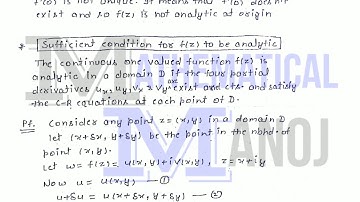 f'(0) is not unique. It means that f'(0) does not
exist and so f(z) is not analytic at origin
Sufficient condition for f(z) to be analytic
The continuous one valued function f(z) is
analytic in a domain D if the four partial
derivatives ux, uy, vx & vy are exist and cts. and satisfy
the C-R equations at each point of D.
Pf. Consider any point z=(x,y) in a domain D
let (x+δx, y+δy) be the point in the nbhd. of
point (x,y).
Let w = f(z) = u(x,y)+iv(x,y), z=x+iy
Now u = u(x,y) —①
u+δu = u(x+δx, y+δy) —②
MATHEMATICAL
MANOJ